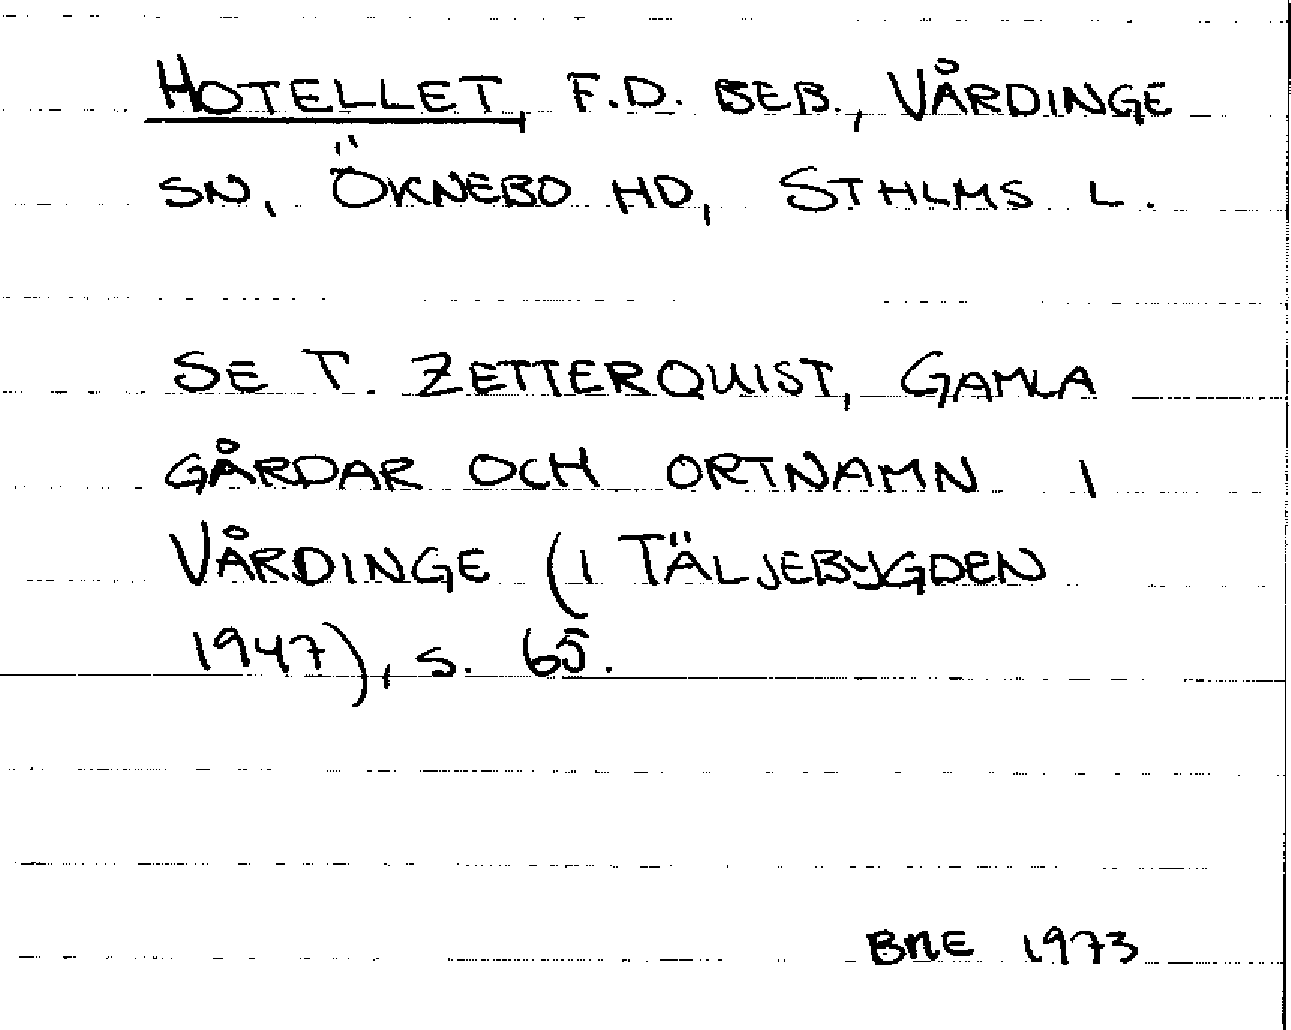 HOTELLET, F.D. BEB., VÅRDINGE
SN, ÖKNEBO HD, STHLMS L.
SE T. ZETTERQUIST, GAMLA
GÅRDAR OCH ORTNAMN I
VÅRDINGE (I TÄLJEBYGDEN
1947), S. 65.
BME 1973